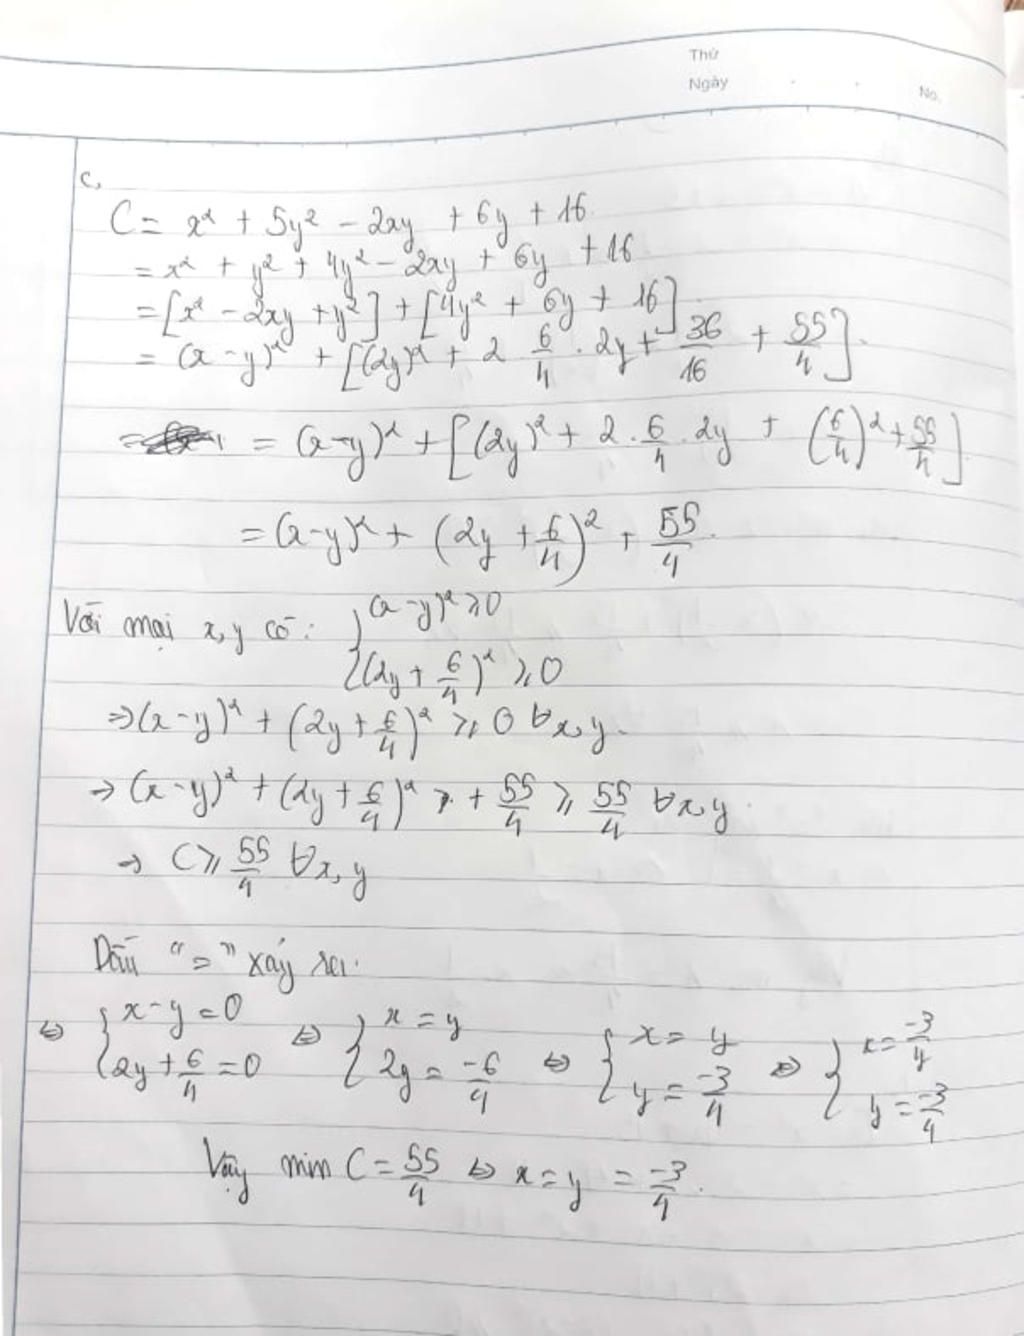 Thứ
Ngày
No.
c,
C = x² + 5y² - 2xy + 6y + 16.
= x² + y² + 4y² - 2xy + 6y + 16
= [x² - 2xy + y²] + [4y² + 6y + 16]
= (x - y)² + [(2y)² + 2 6/4 . 2y + 36/16 + 55/4].
= (x - y)² + [(2y)² + 2 . 6/4 . 2y + (6/4)² + 55/4].
= (x - y)² + (2y + 6/4)² + 55/4.
Với mọi x, y có: { (x - y)² ⩾ 0
(2y + 6/4)² ⩾ 0
⇒ (x - y)² + (2y + 6/4)² ⩾ 0 ∀x, y.
→ (x - y)² + (2y + 6/4)² ⩾ + 55/4 ⩾ 55/4 ∀x, y.
→ C ⩾ 55/4 ∀x, y
Dấu "=" xảy ra.
⇔ { x - y = 0 ⇔ { x = y ⇔ { x = y ⇔ { x = -3/4
2y + 6/4 = 0 2y = -6/4 y = -3/4 y = -3/4
Vậy min C = 55/4 ⇔ x = y = -3/4.